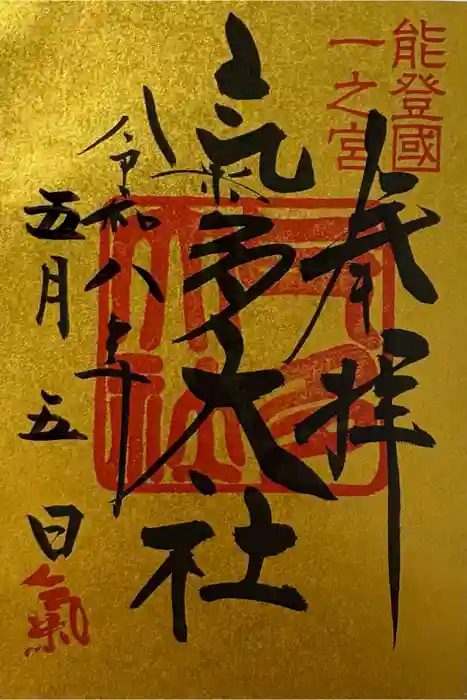 能登國
一之宮
奉拝
氣多大社
令和八年
五月五日
氣多大社
氣